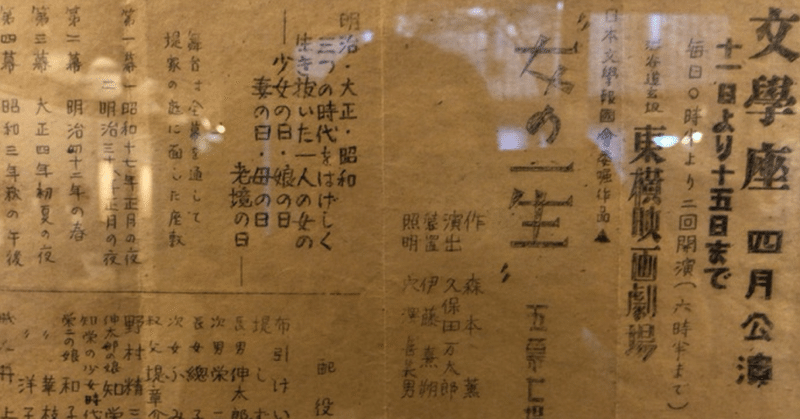 文學座 四月公演
十一日より十五日まで
毎日〇時半より二回開演(六時半まで)
澁谷道玄坂 東横映画劇場
日本文學報國會委囑作品▲
"女の一生"
五幕七場
作 森本薫
演出 久保田万太郎
装置 伊藤熹朔
照明 穴澤喜美男
明治・大正・昭和
三つの時代をはげしく
生き抜いた一人の女の
――少女の日・娘の日
妻の日・母の日
老境の日――
舞台は全幕を通して
堤家の庭に面した座敷
第一幕 一 昭和十七年正月の夜
二 明治三十八年正月の夜
第二幕 明治四十二年の春
第三幕 大正四年初夏の夜
第四幕 昭和三年秋の午後
配役
布引けい
堤しず
長男伸太郎
次男栄二
長女總子
次女ふみ
叔父堤章介
野村精三
伸太郎の娘知栄
知栄の少女時代
栄二の娘 和子
〃 華枝
〃 洋子
井上